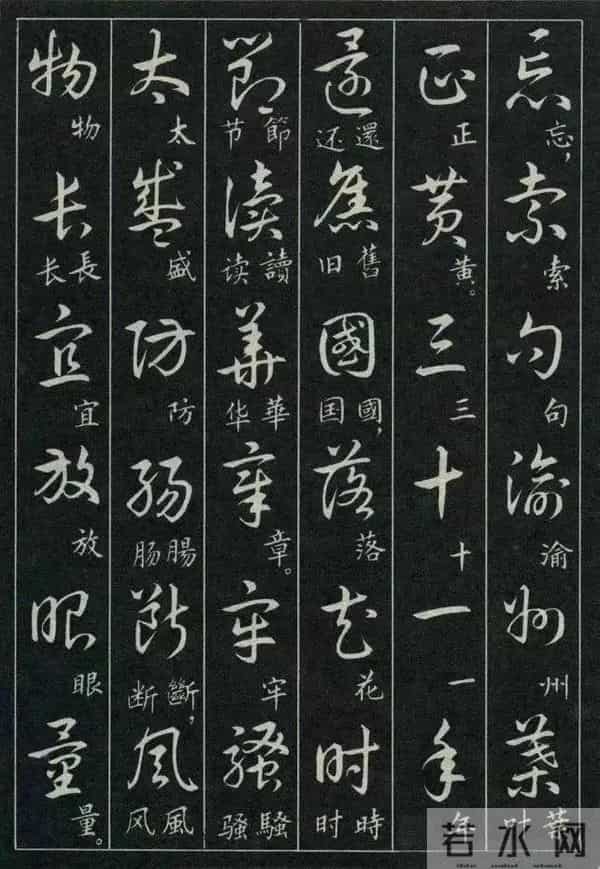 忘索句渝州葉
忘，索句渝州葉叶
正黄三十一年
正黄。三十一年
還舊國落花时
還还舊旧國，国落花時时
節讀華章牢騷
節节讀读華华章。牢騷骚
太盛防腸斷風
太盛防腸肠斷，断風风
物长宜放眼量
物長长宜放眼量。
若水网